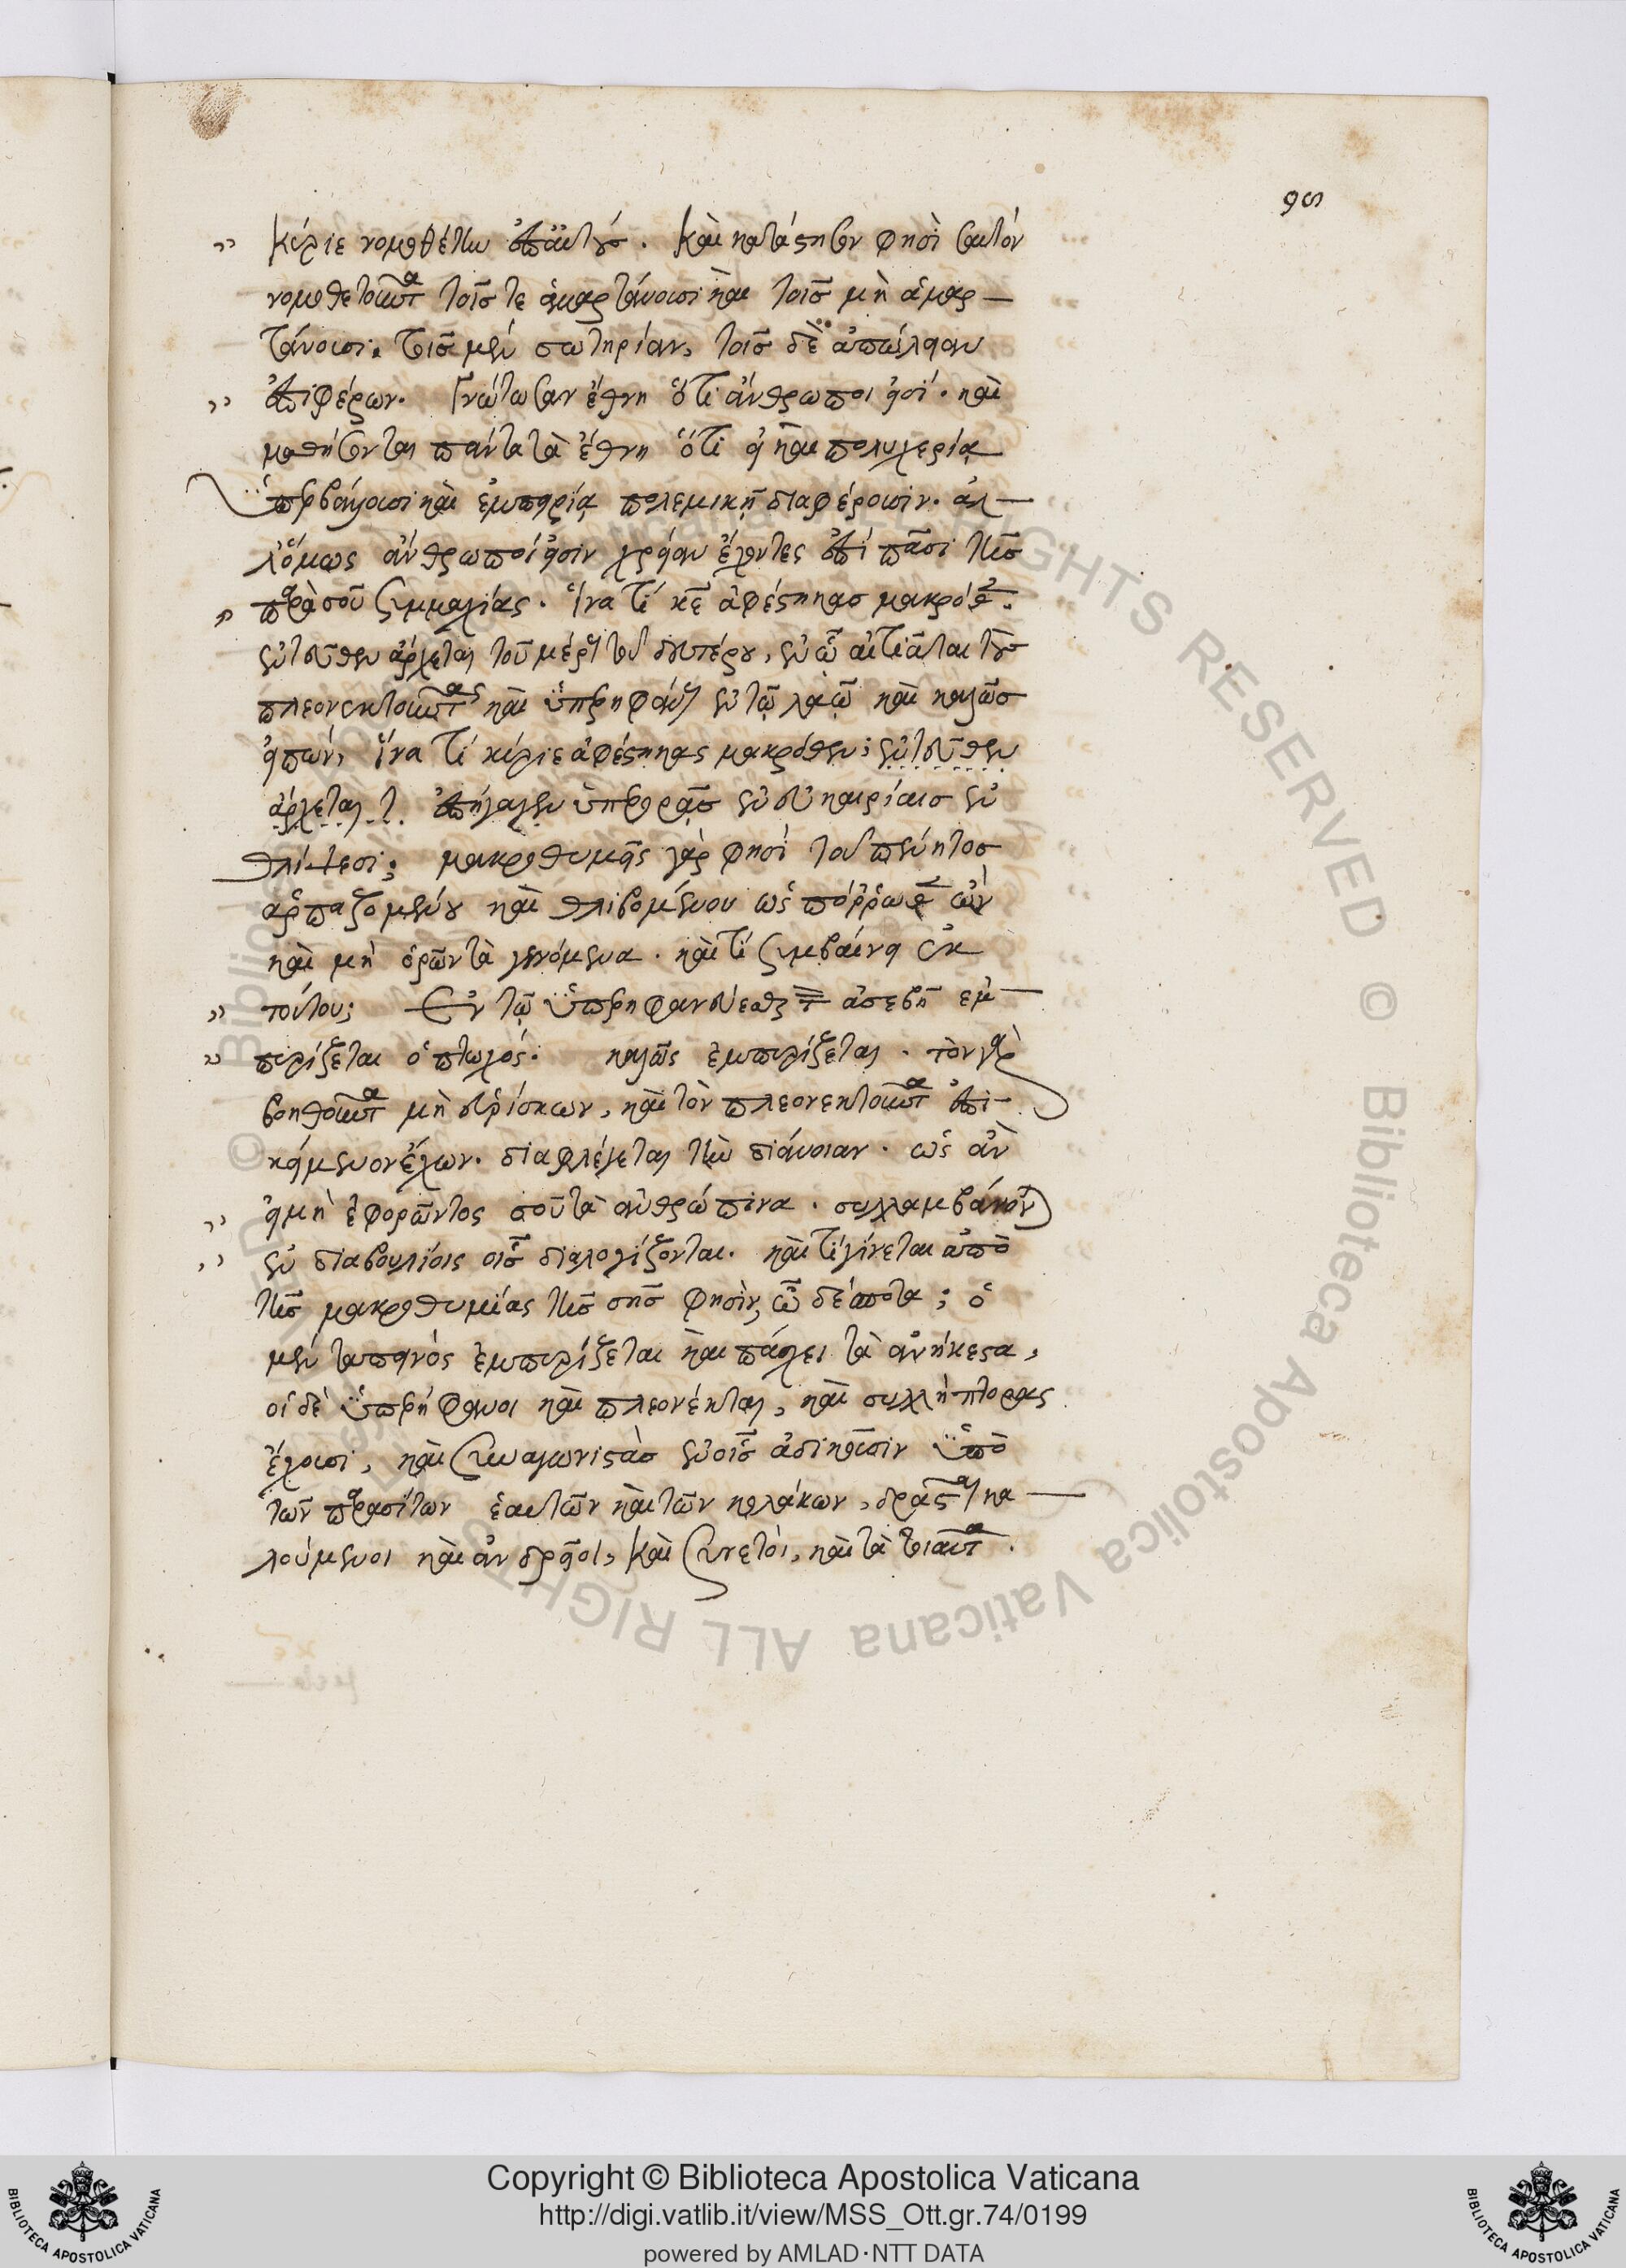 ϟϛ
κύριε νομοθέτην ἐπ' αὐτούς. Καὶ κατάστησον φησὶ αὐτὸν
νομοθετοῦντα τοῖς τε ἁμαρτάνουσι καὶ τοῖς μὴ ἁμαρ
τάνουσι. τοῖς μὲν σωτηρίαν, τοῖς δὲ ἀπώλειαν
ἐπιφέρων. Γνώτωσαν ἔθνη ὅτι ἄνθρωποι εἰσί. καὶ
μαθήσονται πάντα τὰ ἔθνη ὅτι εἰ καὶ πολυχερίᾳ
ὑπερβάλλουσι καὶ ἐμπειρίᾳ πολεμικῇ διαφέρουσιν. ἀλ
λ' ὅμως ἄνθρωποί εἰσιν χρείαν ἔχοντες ἐπί πᾶσι τῆς
παρὰ σοῦ συμμαχίας. Ἵνα τί κε ἀφέστηκας μακρόθεν.
ἐντεῦθεν ἄρχεται τοῦ μέρους τοῦ δευτέρου, ἐν ᾧ αἰτιᾶται τοὺς
πλεονεκτοῦντας καὶ ὑπερηφάνους ἐν τῷ λαῷ καὶ καλῶς
εἰπών, ἵνα τί κύριε ἀφέστηκας μακρόθεν; ἐντεῦθεν
ἄρχεται τ. ἐπήγαγεν ὑπερορᾷς ἐν εὐκαιρίαις ἐν
θλίψεσι; μακροθυμεῖς γάρ φησί τοῦ πένητος
ἁρπαζομένου καὶ θλιβομένου ὡς πόρρωθεν ὢν
καὶ μὴ ὁρῶν τὰ γενόμενα. καὶ τί συμβαίνει ἐκ
τούτου; Ἐν τῷ ὑπερηφανεύεσθαι τὸν ἀσεβῆ ἐμ
πυρίζεται ὁ πτωχός. καλῶς ἐμπυρίζεται. τὸν γὰρ
βοηθοῦντα μὴ εὑρίσκων, καὶ τὸν πλεονεκτοῦντα ἐπι
κείμενον ἔχων. διαφλέγεται τὴν διάνοιαν. ὡς ἂν
εἰ μὴ ἐφορῶντος σοῦ τὰ ἀνθρώπινα. συλλαμβάνονται
ἐν διαβουλίοις οἷς διαλογίζονται. καὶ τί γίνεται ἀπὸ
τῆς μακροθυμίας τῆς σῆς φησίν, ὦ δέσποτα; ὁ
μὲν ταπεινὸς ἐμπυρίζεται καὶ πάσχει τὰ ἀνήκεστα,
οἱ δὲ ὑπερήφανοι καὶ πλεονέκται, καὶ συλλήπτορας
ἔχουσι, καὶ συναγωνιστὰς ἐν οἷς ἀδικοῦσιν ὑπὸ
τῶν παρασίτων ἑαυτῶν καὶ τῶν κολάκων, δραστικοὶ κα
λούμενοι καὶ ἀνδρεῖοι, καὶ συνετοί, καὶ τὰ τοιαῦτα.
Copyright © Biblioteca Apostolica Vaticana
http://digi.vatlib.it/view/MSS_Ott.gr.74/0199
powered by AMLAD·NTT DATA
BIBLIOTECA APOSTOLICA VATICANA
BIBLIOTECA APOSTOLICA VATICANA
© Biblioteca Apostolica Vaticana ALL RIGHTS RESERVED